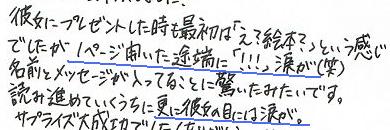 彼女にプレゼントした時も最初は「えっ?絵本?」という感じ
でしたが1ページ開いた途端に「!!!」涙が(笑)
名前とメッセージが入ってることに驚いたみたいです。
読み進めていくうちに更に彼女の目には涙が。
サプライズ大成功で